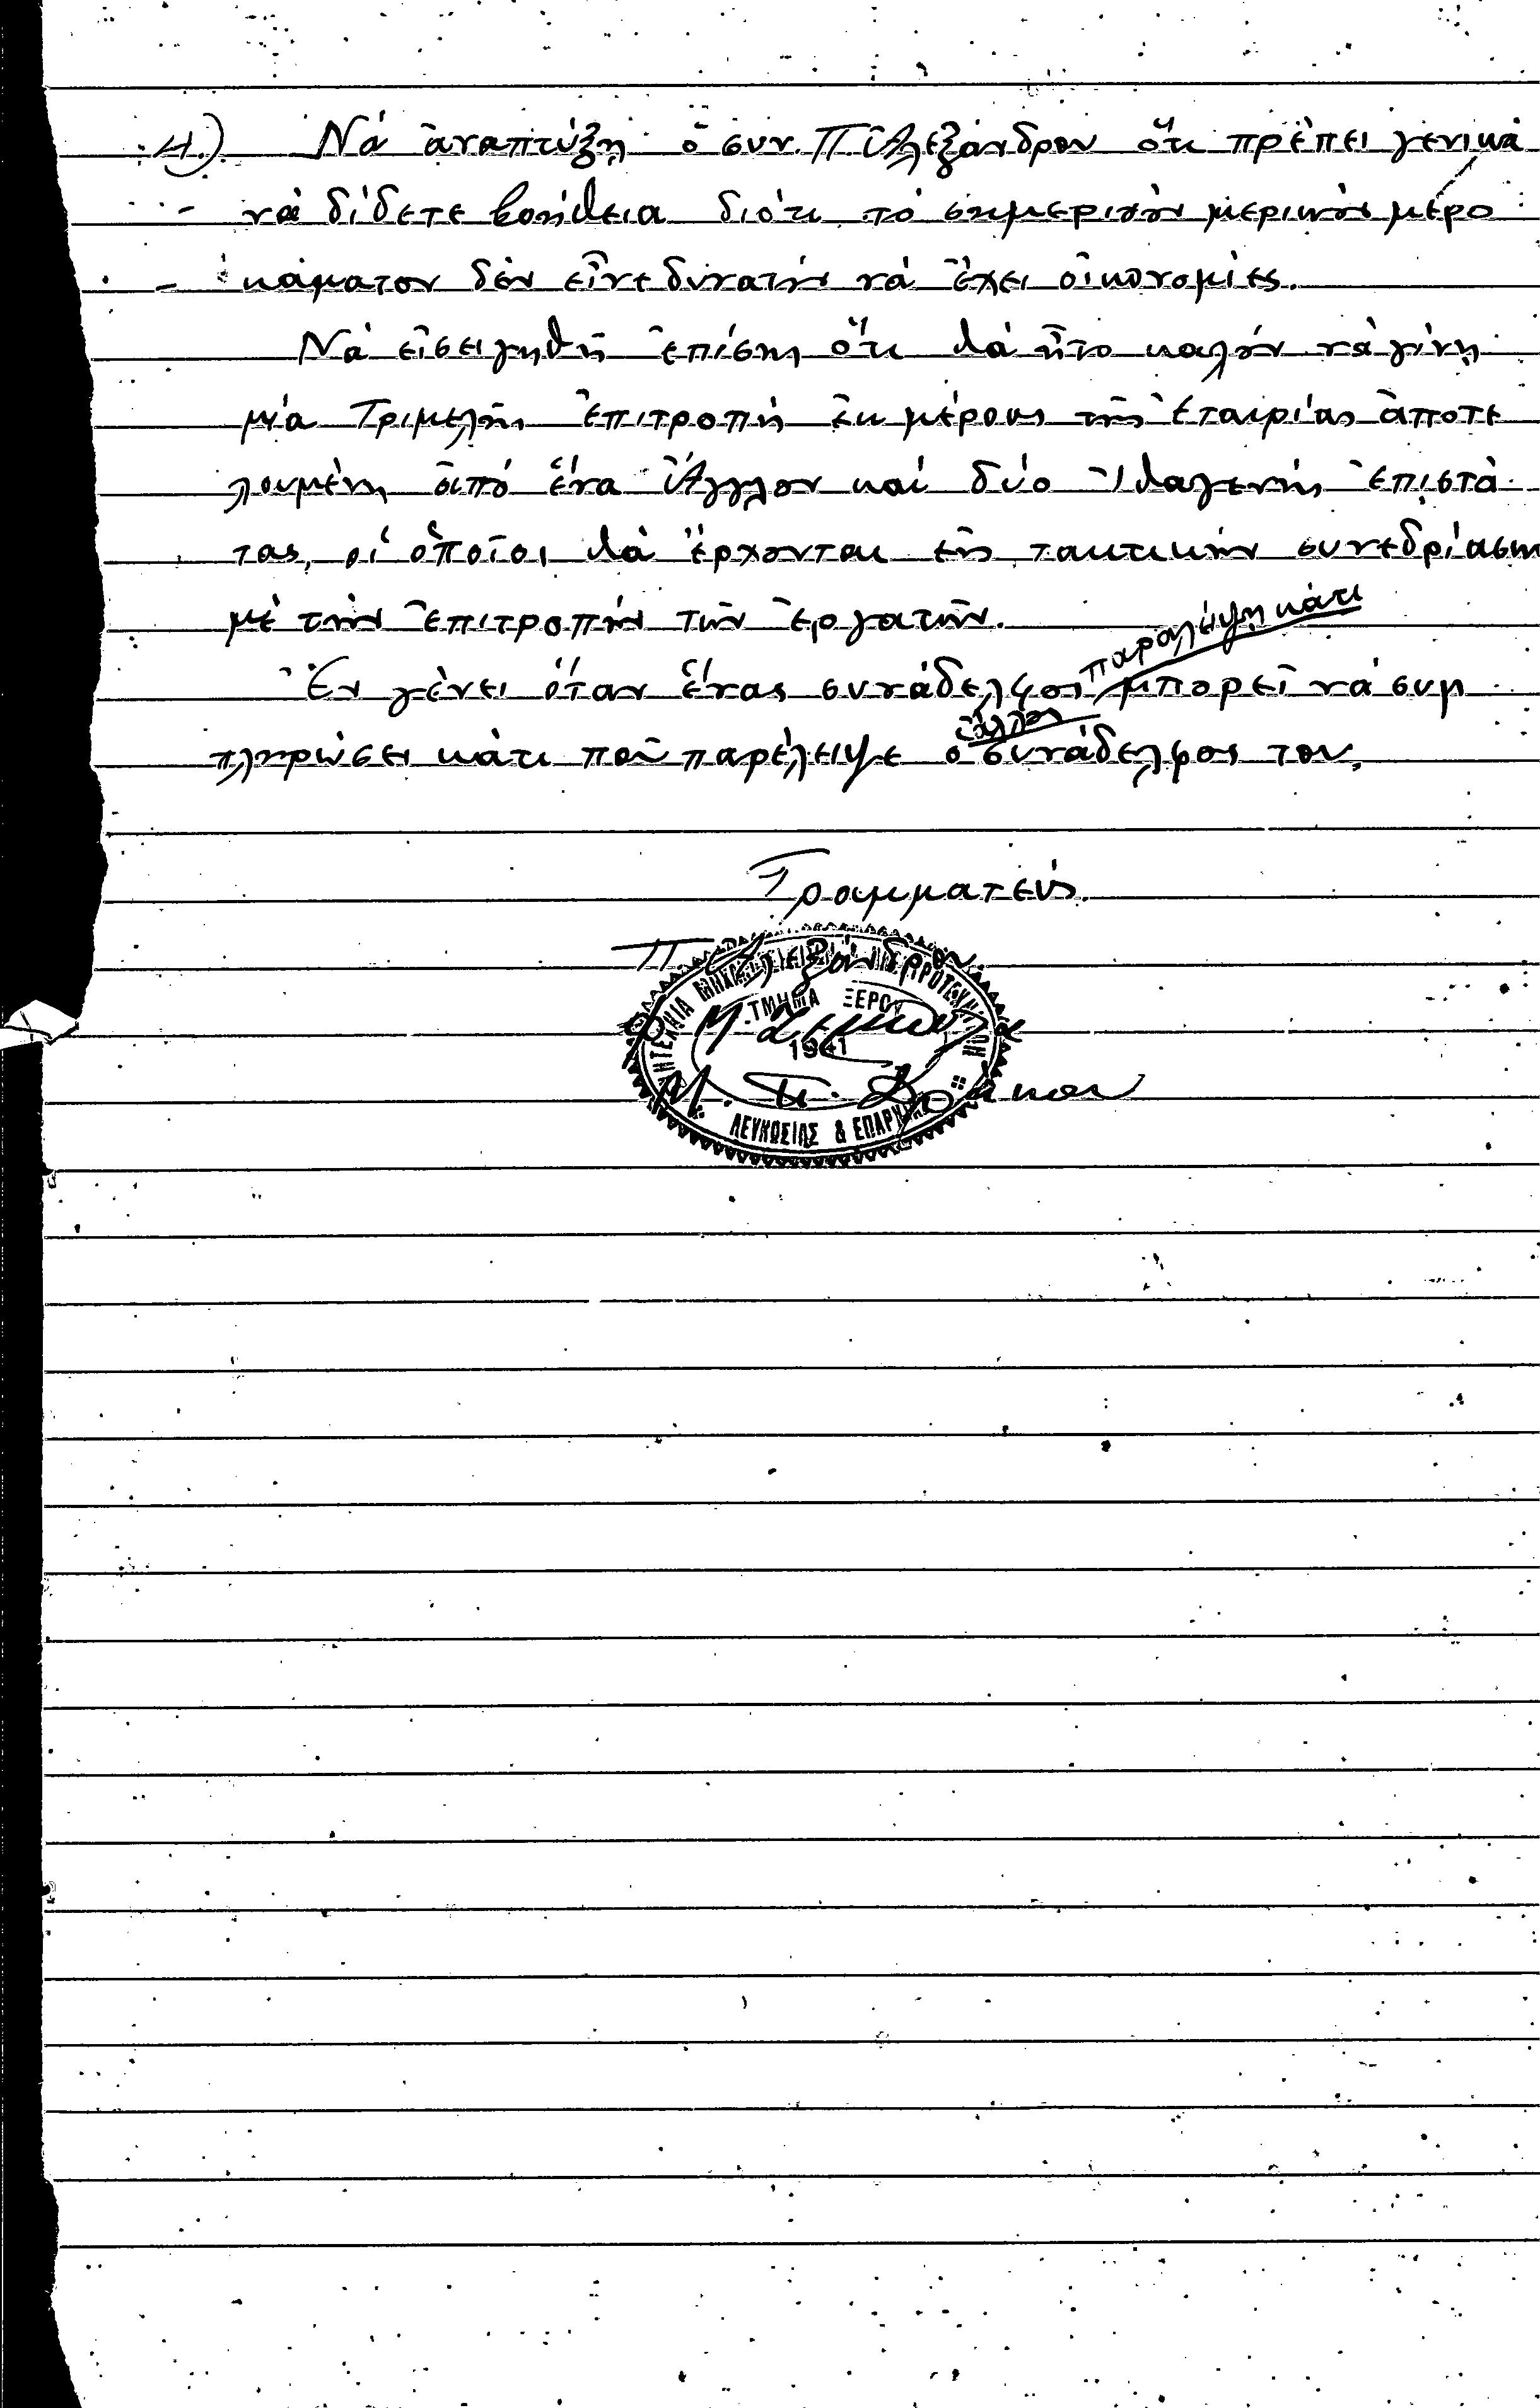 4.) Νά ἀναπτύξῃ ὁ συν. Π. Ἀλεξάνδρου ὅτι πρέπει γενικά
νά δίδετε βοήθεια διότι τό σημερινόν μερικόν μέρο
κάματον δέν εἶνε δυνατόν νά ἔχει οἰκονομίες.
Νά εἰσειγηθῆ ἐπίσης ὅτι θά ἦτο καλόν νά γίνῃ
μία Τριμελής ἐπιτροπή ἐκ μέρους τῆς ἑταιρίας ἀποτε
λουμένη ἀπό ἕνα Ἄγγλον καί δύο Ἰθαγενής ἐπιστά
τας, οἱ ὁποῖοι θά ἔρχονται εἰς τακτικήν συνεδρίασιν
μέ τήν ἐπιτροπήν τῶν ἐργατῶν.
παραλείψῃ κάτι
Ἐν γένει ὅταν ἕνας συνάδελφος μπορεῖ νά συμ
ἄλλος
πληρώσει κάτι ποῦ παρέλειψε ὁ συνάδελφος του.
Γραμματεύς.
Π. Ἀλεξάνδρου
ΤΜΗΜΑ ΞΕΡΟΥ
1941
Μ. Π. Δράκου
ΛΕΥΚΩΣΙΑΣ & ΕΠΑΡΧΙΑΣ